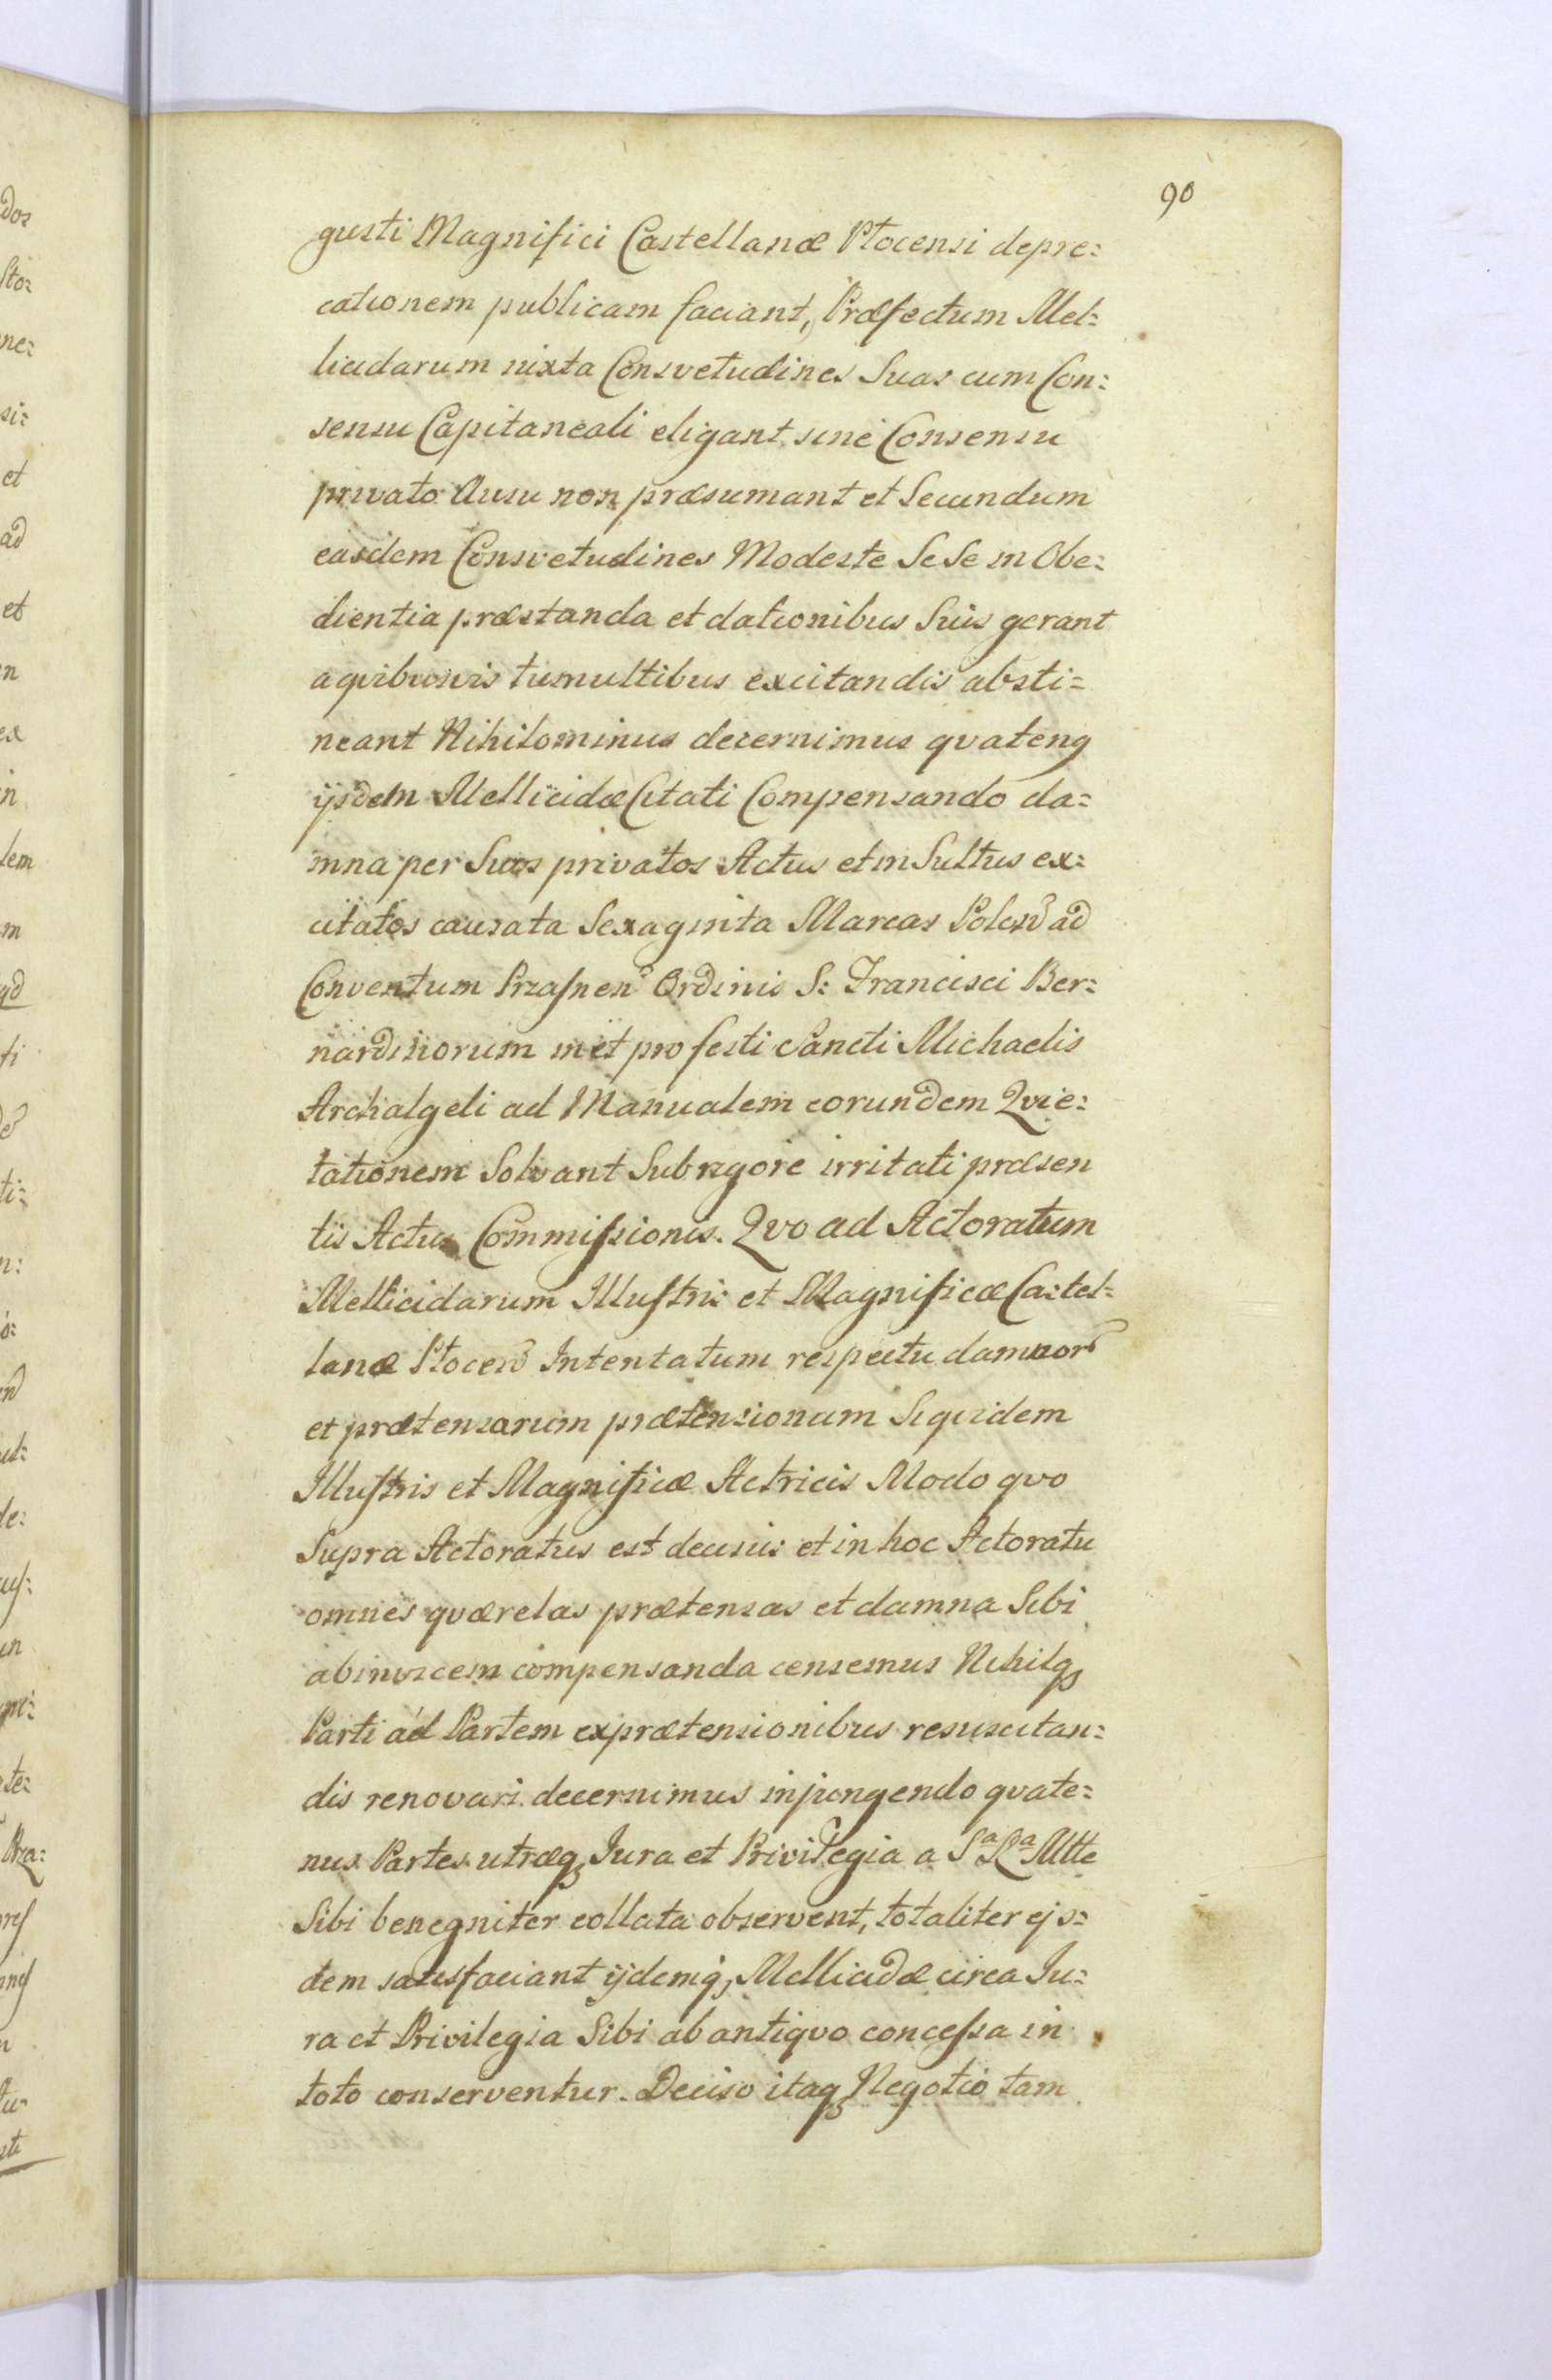 90
gusti Magnifici Castellanæ Plocensi depre:
cationem publicam faciant, Præfectum Mel:
licidarum iuxta Consvetudines Suas cum Con:
sensu Capitaneali eligant sine Consensu
privato Ausu non præsumant et Secundum
easdem Consvetudines Modeste Se Se in Obe:
dientia præstanda et dationibus Suis gerant
a qvibusvis tumultibus excitandis absti=
neant Nihilominus decernimus qvatenq
ijsdem Mellicidæ Citati Compensando da:
mna per Suos privatos Actus et in Sultus ex:
citatos causata Sexaginta Marcas Polen ad
Conventum Praſnen Ordinis S: Francisci Ber:
nardinorum in et pro festi Sancti Michaelis
Archalgeli ad Manualem eorundem Qvie:
tationem Solvant Sub rigore irritati præsen
tis Actus Commiſsionis. Qvo ad Actoratum
Mellicidarum Illuſtris et Magnificæ Castel:
lanæ Plocen Intentatum respectu damnor
et prætensarum prætensionum Siqvidem
Illuſtris et Magnificæ Actricis Modo qvo
Supra Actoratus est decisus et in hoc Actoratu
omnes qværelas prætensas et damna Sibi
abinvicem compensanda censemus Nihilq
Parti ad Partem ex prætensionibus resuscitan:
dis renovari decernimus injungendo qvate:
nus Partes utræq Jura et Privilegia a Sa Ra Mtte
Sibi benegniter collata observent, totaliter ejs:
dem satisfaciant ijdemq, Mellicidæ circa Ju:
ra et Privilegia Sibi ab antiqvo conceſsa in
toto conserventur. Deciso itaq Negotio tam